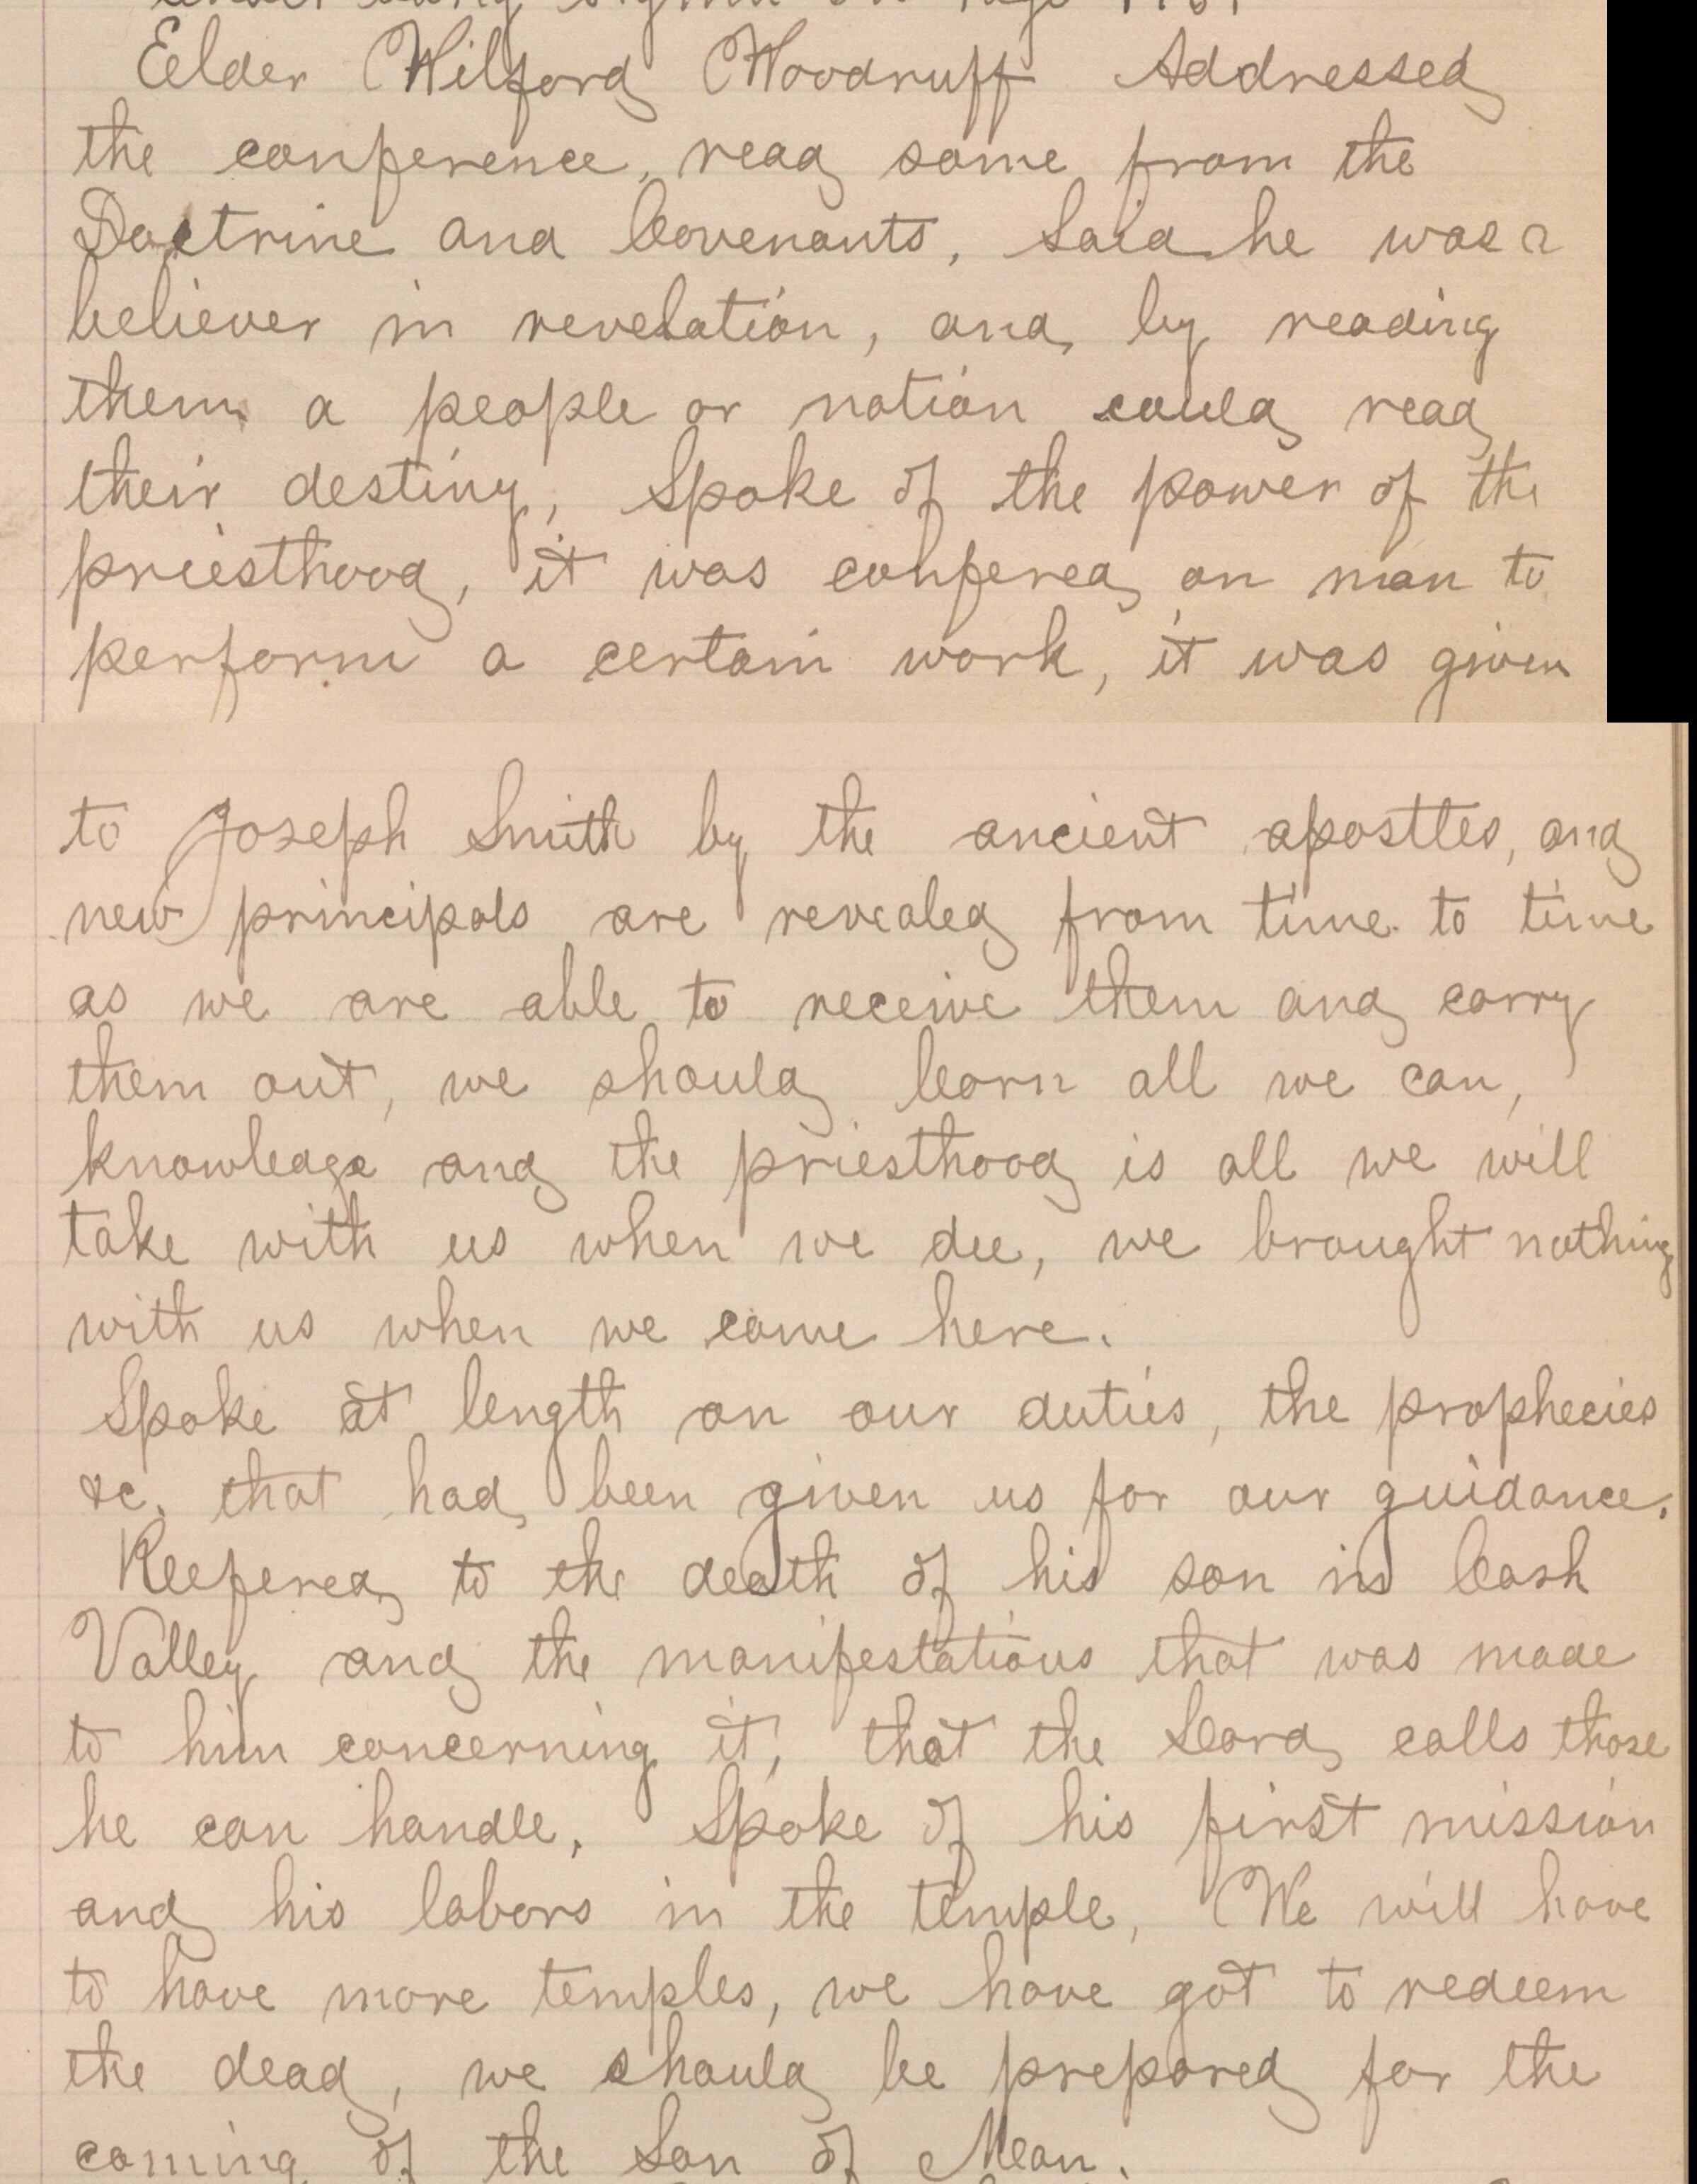 Elder Wilford Woodruff Addressed
the conference, read some from the
Doctrine and Covenants, Said he was a
believer in revelation, and by reading
them a people or nation could read
their destiny, Spoke of the power of the
priesthood, it was confered on man to
perform a certain work, it was given
to Joseph Smith by the ancient apostles, and
new principals are revealed from time to time
as we are able to receive them and carry
them out, we should learn all we can,
knowledge and the priesthood is all we will
take with us when we die, we brought nothing
with us when we came here.
Spoke at length on our duties, the prophecies
&c. that had been given us for our guidance.
Refered to the death of his son in Cash
Valley and the manifestations that was made
to him concerning it, that the Lord calls those
he can handle. Spoke of his first mission
and his labors in the temple, We will have
to have more temples, we have got to redeem
the dead, we should be prepared for the
coming of the Son of Man.